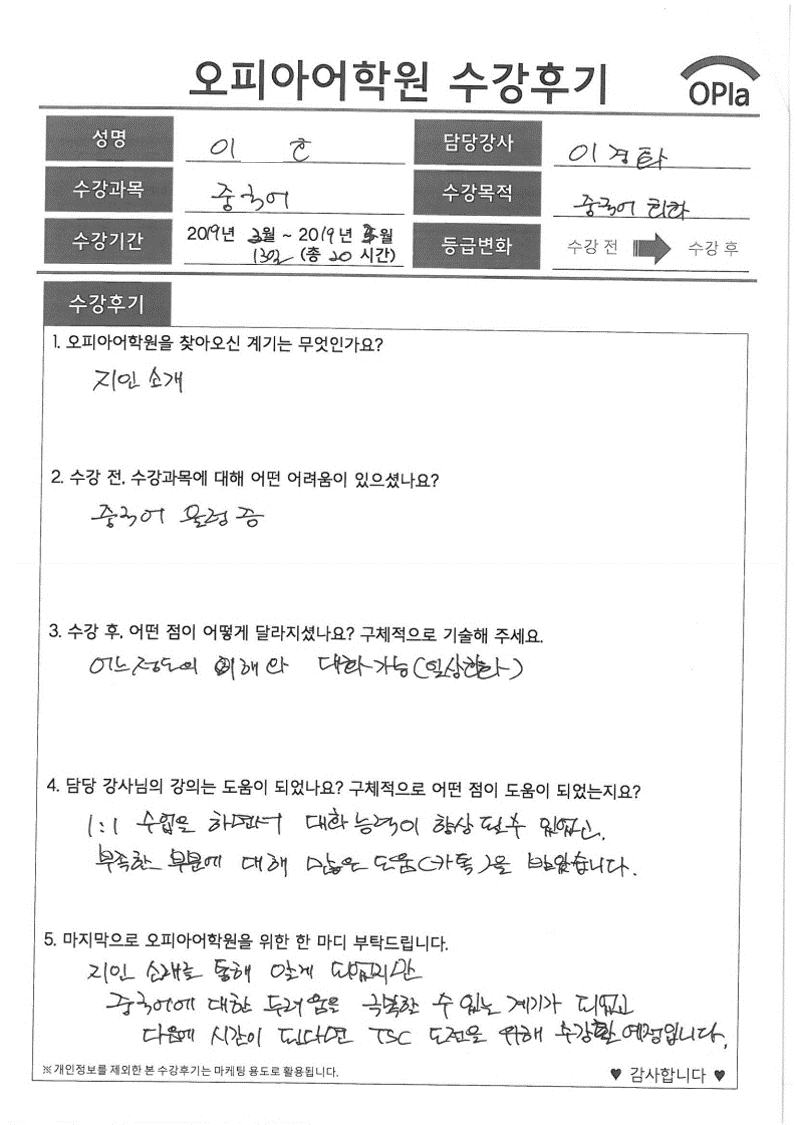 오피아어학원 수강후기
OPIa
성명 이 호 담당강사 이경화
수강과목 중국어 수강목적 중국어 회화
수강기간 2019년 월 ~ 2019년 월 (총 20 시간) 등급변화 수강 전 수강 후
수강후기
1. 오피아어학원을 찾아오신 계기는 무엇인가요?
지인 소개
2. 수강 전, 수강과목에 대해 어떤 어려움이 있으셨나요?
중국어 울렁증
3. 수강 후, 어떤 점이 어떻게 달라지셨나요? 구체적으로 기술해 주세요.
어느정도의 이해와 대화가능(일상회화)
4. 담당 강사님의 강의는 도움이 되었나요? 구체적으로 어떤 점이 도움이 되었는지요?
1:1 수업을 하면서 대화능력이 향상 될수 있었고,
부족한 부분에 대해 많은 도움(카톡)을 받았습니다.
5. 마지막으로 오피아어학원을 위한 한 마디 부탁드립니다.
지인 소개로 통해 알게 되었지만
중국어에 대한 두려움은 극복한 수 있는 계기가 되었고
다음에 시간이 된다면 TSC 도전을 위해 수강할 예정입니다.
※ 개인정보를 제외한 본 수강후기는 마케팅 용도로 활용됩니다.
♥ 감사합니다 ♥